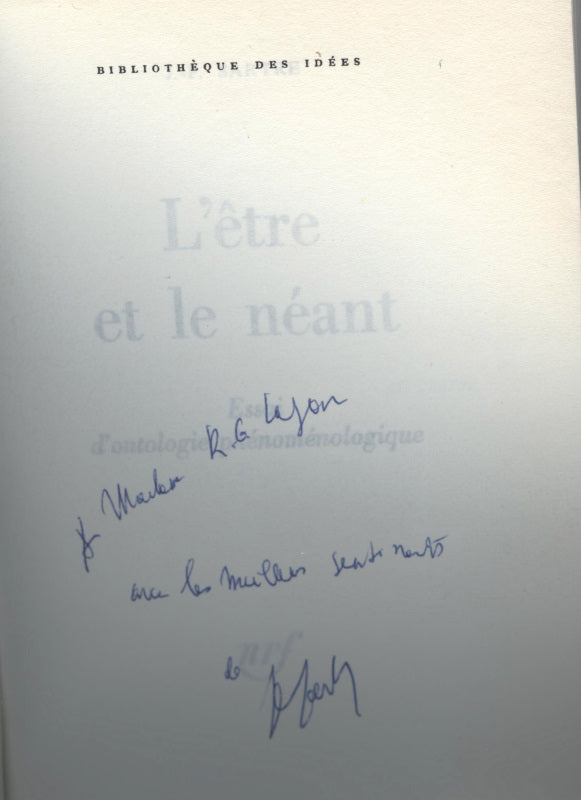 BIBLIOTHÈQUE DES IDÉES
J.-P. SARTRE
L'être
et le néant
Essai
d'ontologie phénoménologique
A Madame R. G. Lafon
avec les meilleurs sentiments
nrf
de